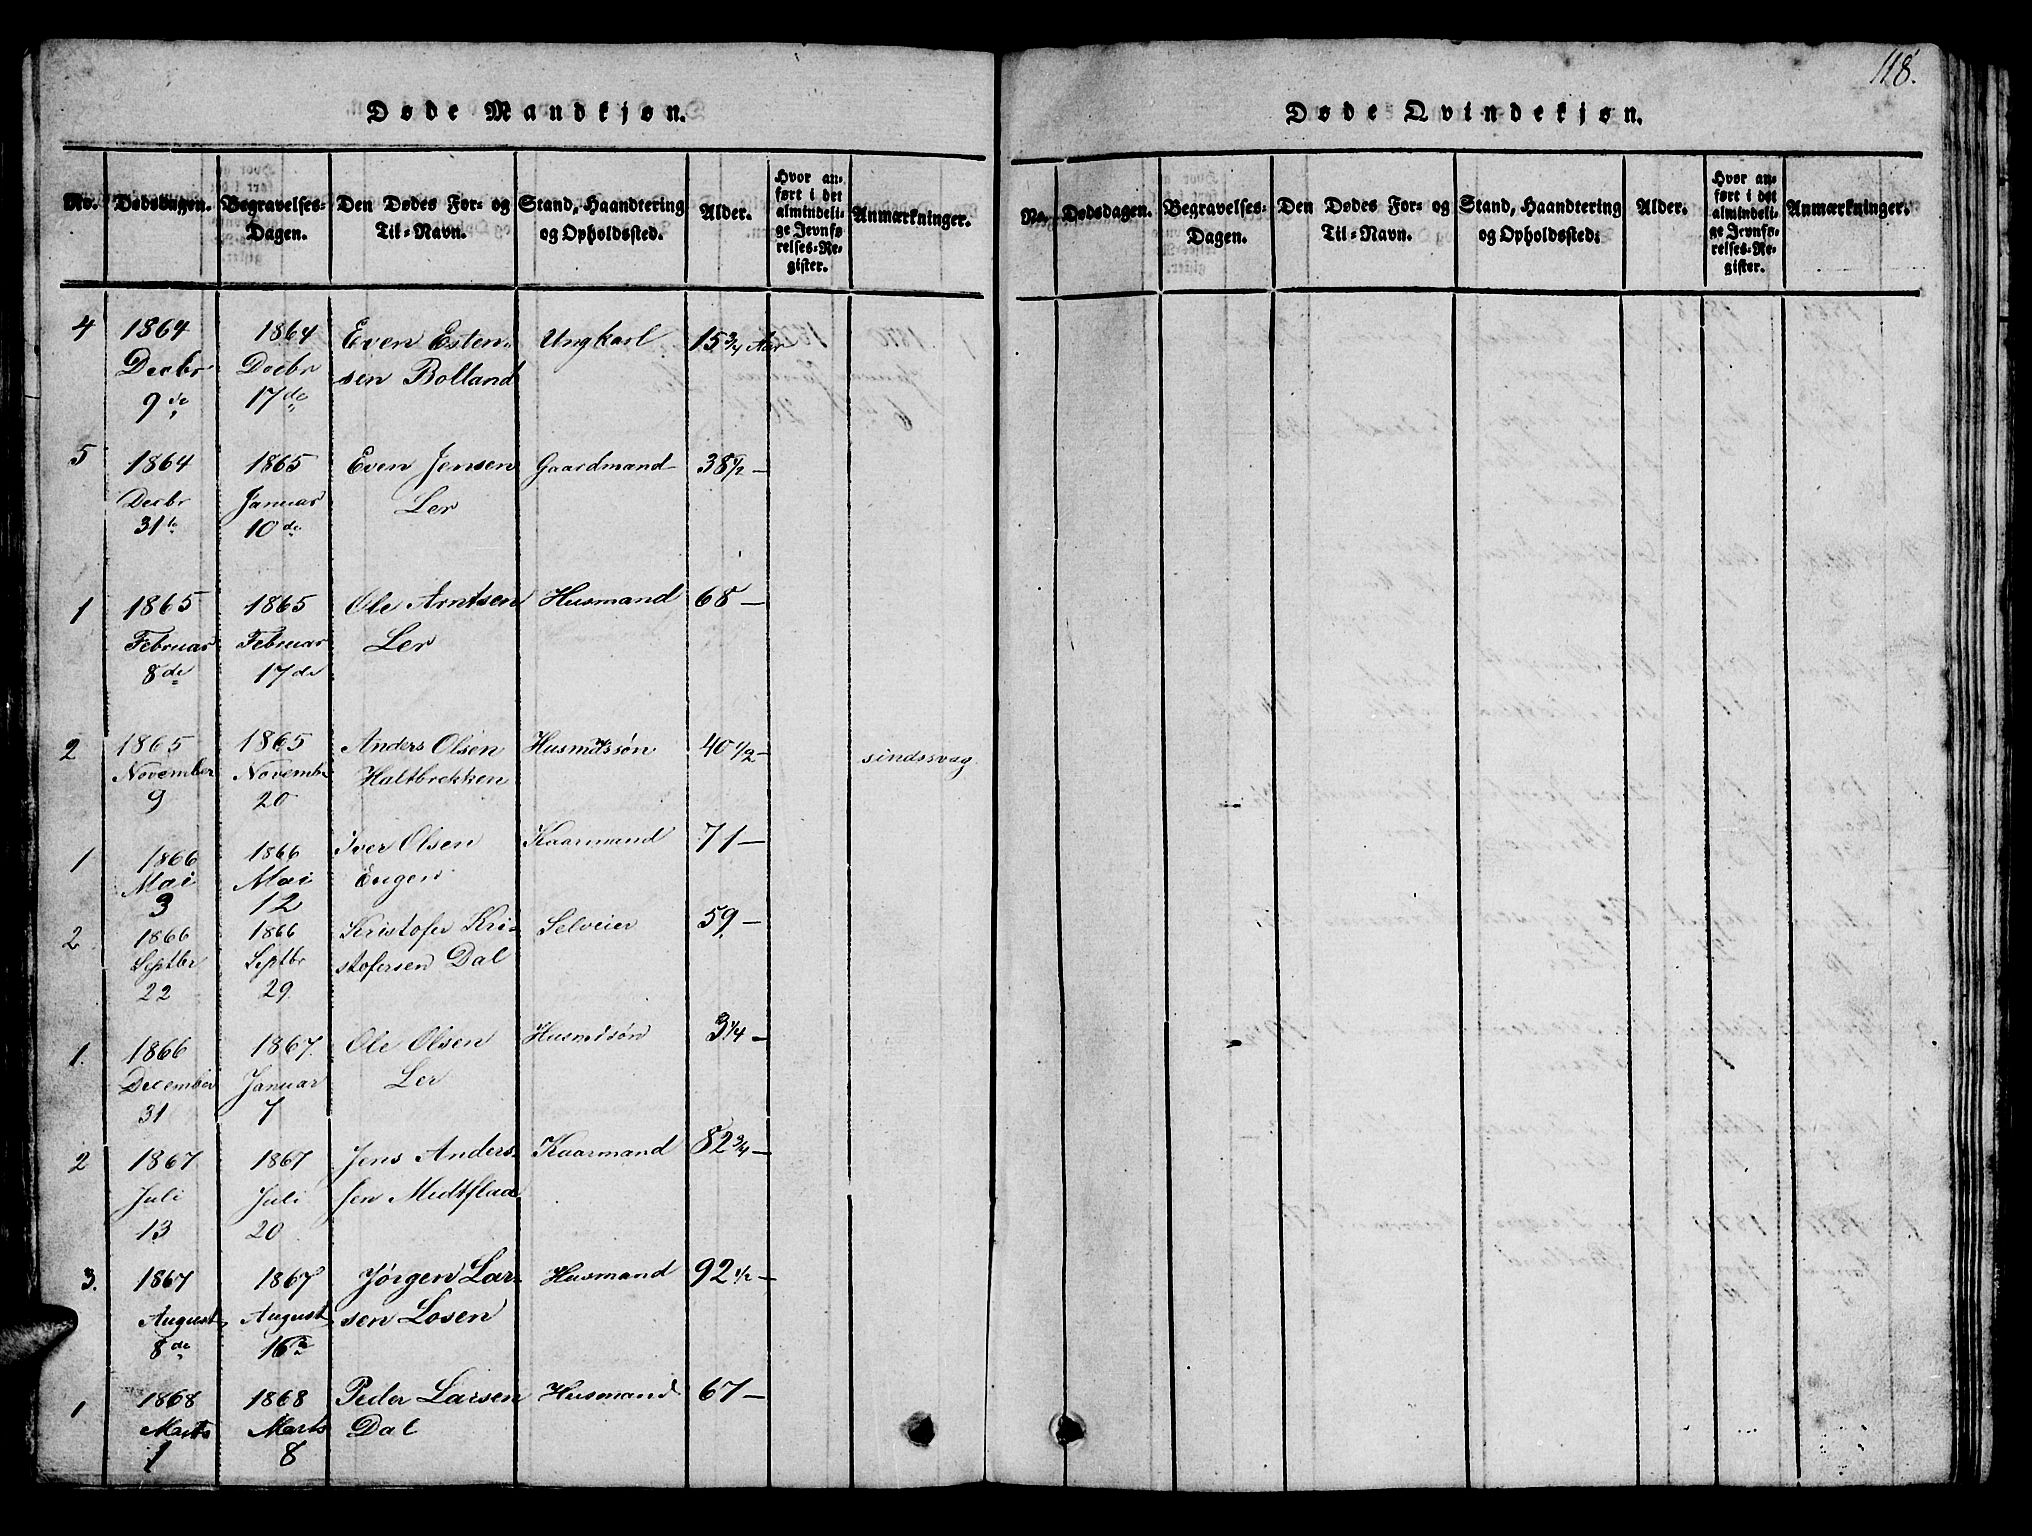 118.
Døde Mandkjøn.
No. Dødsdagen. Begravelses-Dagen. Den Dødes For- og Til-Navn. Stand, Haandtering og Opholdssted. Alder. Hvor anført i det almindelige Jevnførelses-Register. Anmærkninger.
4 1864 1864 Even Esten- Ungkarl 15 3/4 Aar
Decbr Decbr sen Bolland
9de 17de
5 1864 1865 Even Jensen Gaardmand 38 1/2 —
Decbr Januar Ler
31te 10de
1 1865 1865 Ole Arntsen Husmand 68 —
Februar Februar Ler
8de 17de
2 1865 1865 Anders Olsen Husmdssøn 40 1/2 —
November Novembr Haltbrekken sindssvag
9 20
1 1866 1866 Iver Olsen Kaarmand 71 —
Mai Mai Engen
3 12
2. 1866 1866 Kristofer Kri- Selveier 59 —
Septbr Septbr stofersen Dal
22 29
1. 1866 1867. Ole Olsen Husmdsøn 3 1/4 —
December Januar Ler
31 7
2 1867 1867 Jens Anders- Kaarmand 82 3/4 —
Juli Juli sen Midtflaa
13 20
3. 1867 1867 Jørgen Lar- Husmand 92 1/2 —
August August sen Losen
8de 16de
1 1868 1868 Peder Larsen Husmand 67 —
Marts Marts Dal
1 8
Døde Qvindekjøn.
No. Dødsdagen. Begravelses-Dagen. Den Dødes For- og Til-Navn. Stand, Haandtering og Opholdssted. Alder. Hvor anført i det almindelige Jevnførelses-Register. Anmærkninger.